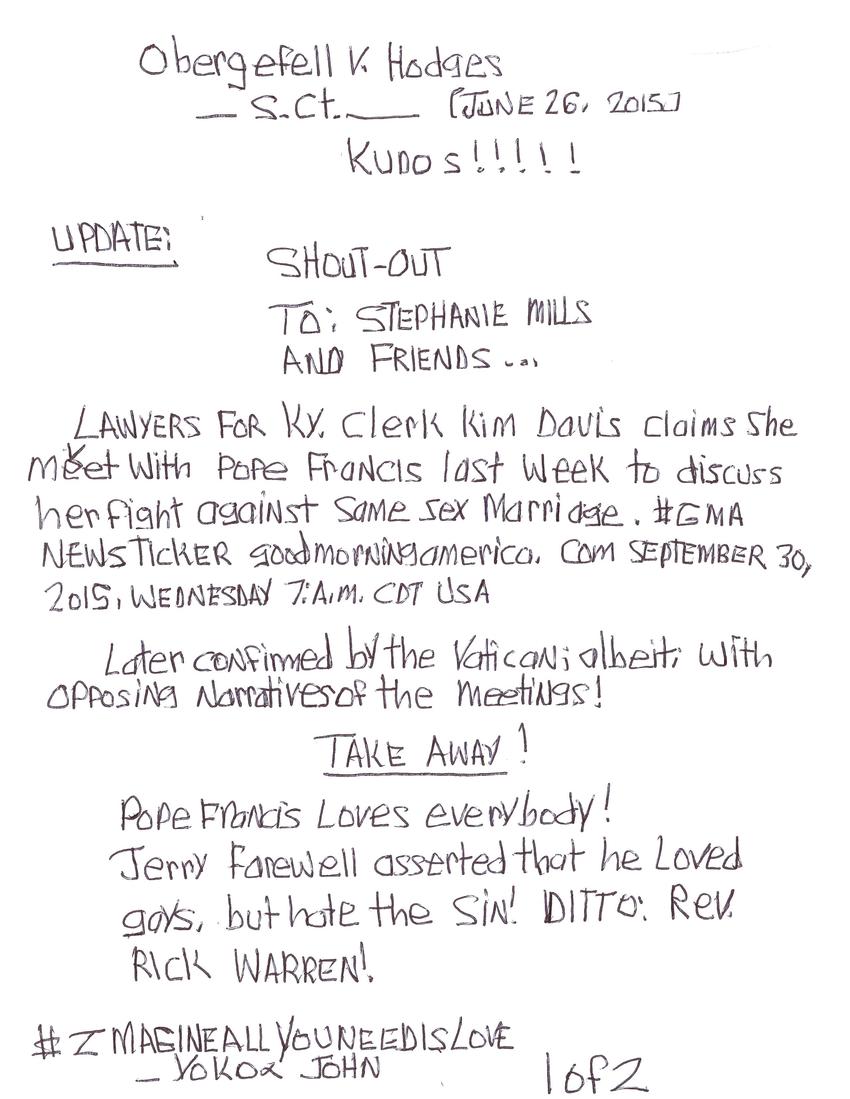 Obergefell V. Hodges
— S.Ct. —— [JUNE 26, 2015]
KUDOS!!!!!
UPDATE:
SHOUT-OUT
TO: STEPHANIE MILLS
AND FRIENDS ...
LAWYERS FOR KY. Clerk Kim Davis claims She
meet With Pope Francis last week to discuss
her fight against Same sex Marriage. #GMA
NEWSTICKER goodmorningamerica. COM SEPTEMBER 30,
2015, WEDNESDAY 7:A.M. CDT USA
Later confirmed by the Vatican; albeit; with
OPPOSING Narratives of the meetings!
TAKE AWAY!
Pope Francis Loves everybody!
Jerry Farewell asserted that he Loved
gays, but hate the SIN! DITTO: Rev.
RICK WARREN!.
#IMAGINEALLYOUNEEDISLOVE
— YOKO& JOHN
1 of 2